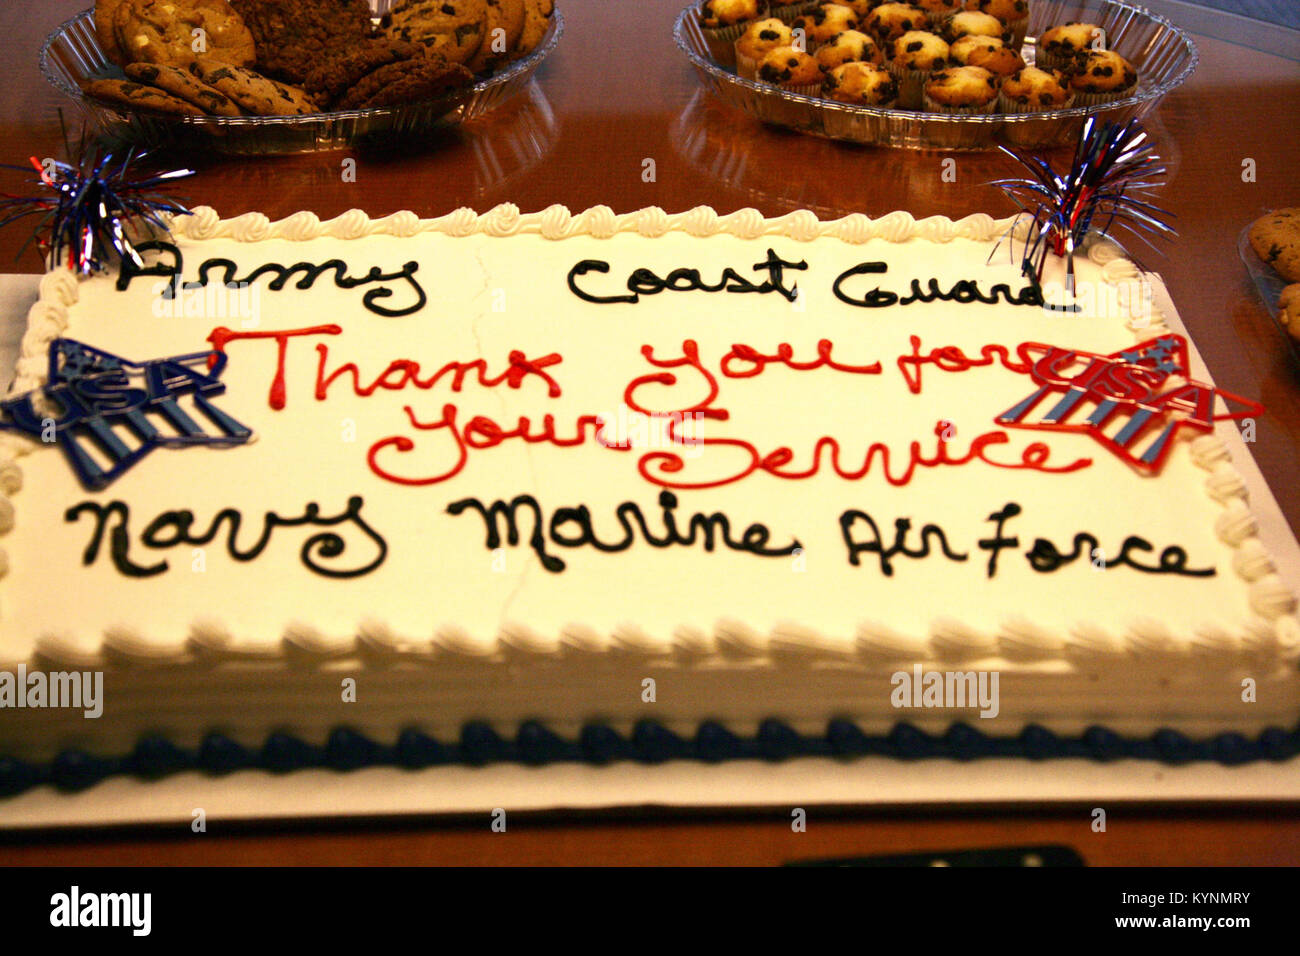 Army Coast Guard
Thank you for
your Service
Navy Marine Air Force
USA
USA
alamy
alamy
alamy
Image ID: KYNMRY
www.alamy.com